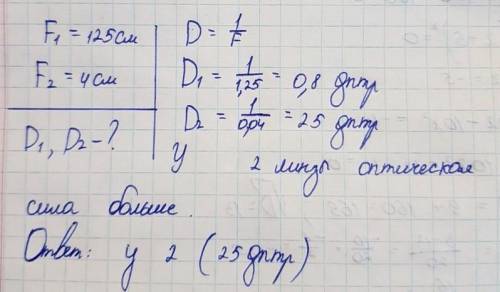 F₁ = 125см
F₂ = 4см
D₁, D₂ - ?
D = 1/F
D₁ = 1/1,25 = 0,8 дптр
D₂ = 1/0,04 = 25 дптр
У 2 линзы оптическая
сила больше.
Ответ: у 2 (25дптр)